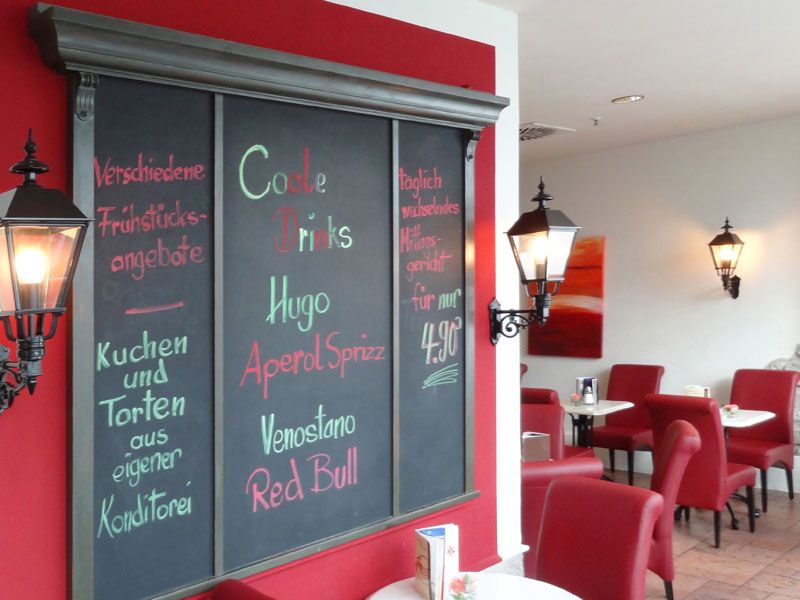 Verschiedene
Frühstücks-
angebote
Kuchen
und
Torten
aus
eigener
Konditorei
Coole
Drinks
Hugo
Aperol Sprizz
Venostano
Red Bull
täglich
wechselndes
Mittags-
gericht
für nur
4.90